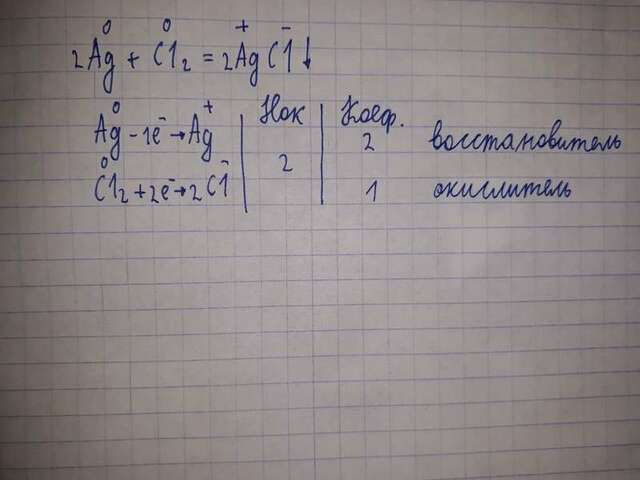 0 0 + -
2Ag + Cl₂ = 2AgCl↓
Нок Коеф.
0 +
Ag - 1e⁻ → Ag 2 восстановитель
2
0 -
Cl₂ + 2e⁻ → 2Cl 1 окислитель